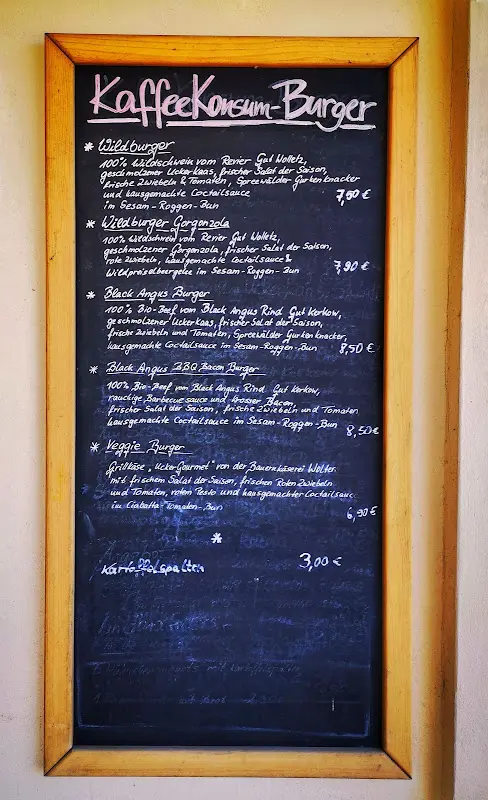 KaffeeKonsum-Burger
* Wildburger
100% Wildschwein vom Revier Gut Wolletz,
geschmolzener UckerKaas, frischer Salat der Saison,
frische Zwiebeln & Tomaten, Spreewälder Gurken Knacker
und hausgemachte Coctailsauce 7,50 €
im Sesam-Roggen-Bun
* Wildburger Gorgonzola
100% Wildschwein vom Revier Gut Wolletz,
geschmolzener Gorgonzola, frischer Salat der Saison,
rote Zwiebeln, hausgemachte Coctailsauce &
Wildpreiselbeergelee im Sesam-Roggen-Bun 7,90 €
* Black Angus Burger
100% Bio-Beef vom Black Angus Rind Gut Kerkow,
geschmolzener UckerKaas, frischer Salat der Saison,
frische Zwiebeln und Tomaten, Spreewälder Gurken Knacker,
hausgemachte Coctailsauce im Sesam-Roggen-Bun 8,50 €
* Black Angus BBQ Bacon Burger
100% Bio-Beef vom Black Angus Rind Gut Kerkow,
rauchige Barbecuesauce und krosser Bacon,
frischer Salat der Saison, frische Zwiebeln und Tomaten
hausgemachte Coctailsauce im Sesam-Roggen-Bun
8,50 €
* Veggie Burger
Grillkäse "UckerGourmet" von der Bauernkäserei Wolter
mit frischem Salat der Saison, frischen Roten Zwiebeln
und Tomaten, rotem Pesto und hausgemachter Coctailsauc.
im Ciabatta-Tomaten-Bun 6,90 €
*
Kartoffelspalten 3,00 €